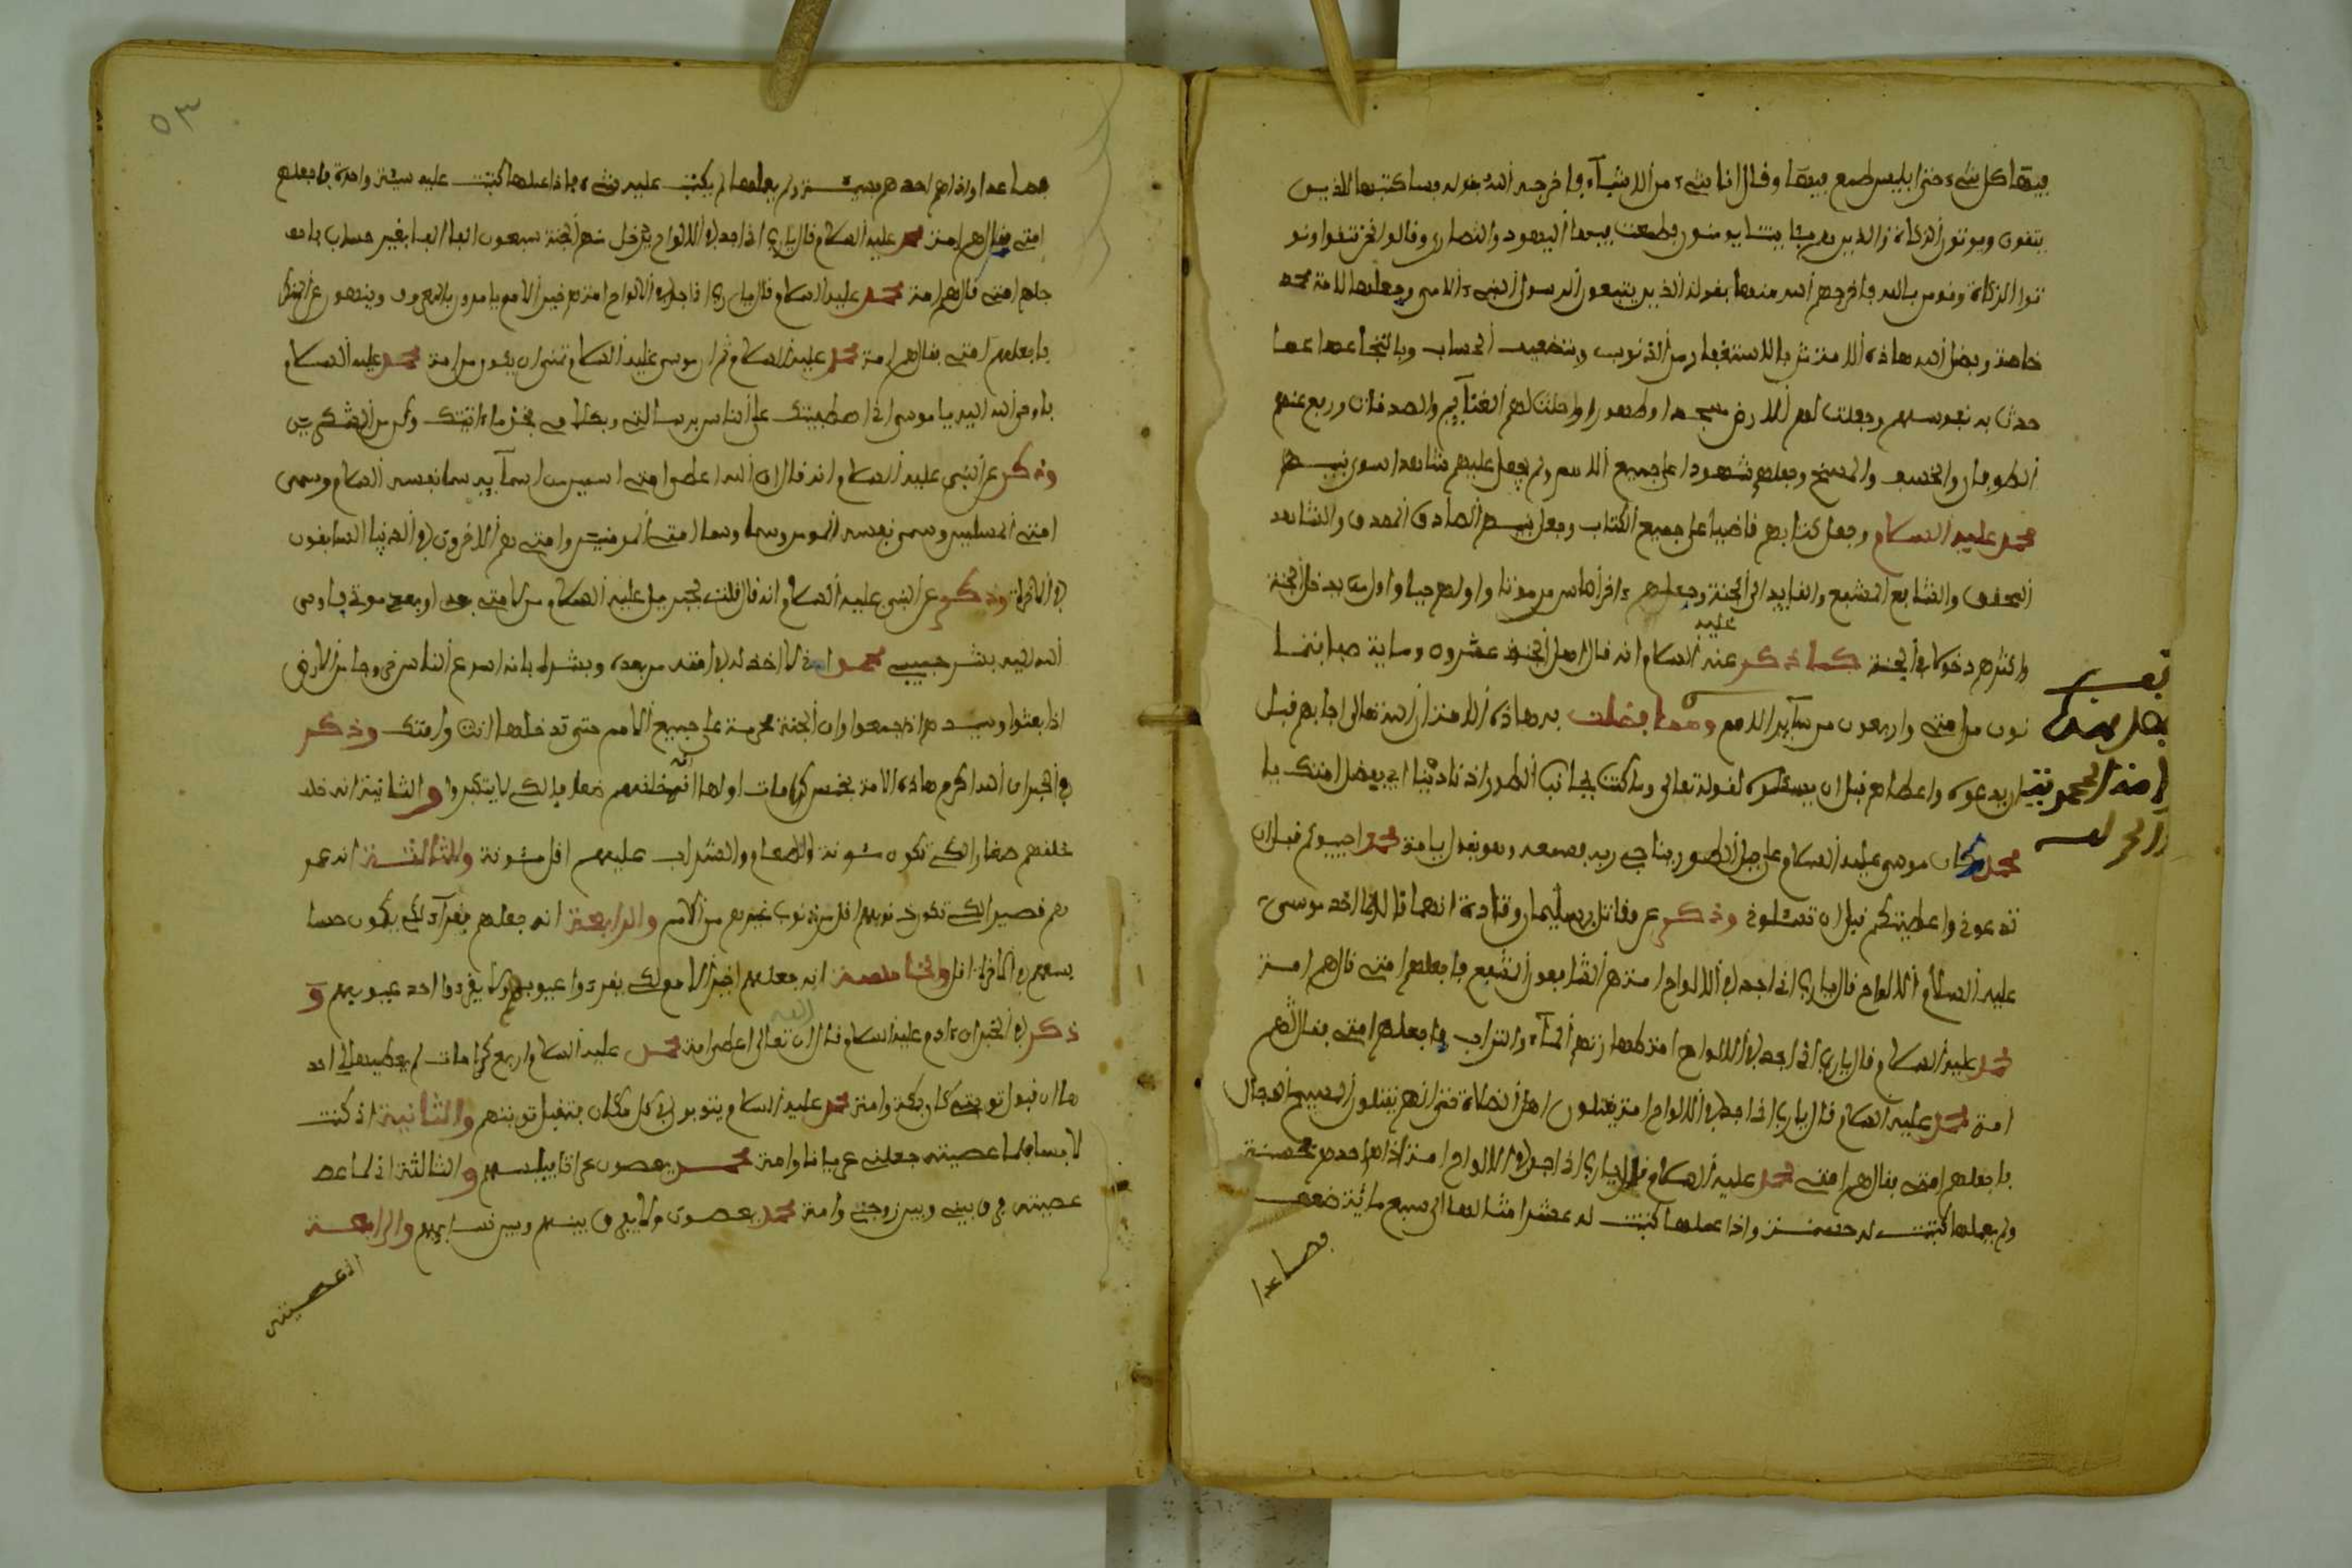 فيها كل شيء حتى إبليس طمع فيها وقال انا شيء من الاشيآء فاخرجه الله بقوله فساكتبها للذين
يتقون ويوتون الزكاة والذين هم بئاياتنا يومنون فطمعت فيها اليهود والنصارى وقالوا نحن نتقوا ونو
توا الزكاة ونومن بالله فاخرجهم الله منها بقوله الذين يتبعون الرسول النبيء الامي وجعلها للامة محمد
خاصة وفضل الله هاذه الامة بالاستغفار من الذنوب وتضعيف الحساب وبالتجاعها عما
حدث به نفوسهم وجعلت لهم الارض مسجدا وطهورا واحلت لهم الغنآيم والصدقات ورفع عنهم
الطوفان والخسف والمسخ وجعلهم شهودا على جميع الامم ولم يجعل عليهم شاهدا سوى نبيهم
محمد عليه السلام وجعل كتابهم قاضيا على جميع الكتاب وجعل نبيهم الصادق المصدق والشاهد
المحقق والشافع المشفع والقايد الى الجنة وجعلهم ءاخر الناس موتا واولهم حيا واول من يدخل الجنة
واكثرهم دخولا في الجنة كما ذكر عنه عليه السلام انه قال اهل الجنة عشرون وماية صبا ثما
نون من امتي واربعون من سآير الامم ومما فضلت به هاذه الامة ان الله تعالى اجابهم قبل
ان يدعوه واعطاهم قبل ان يسئلوه لقوله تعالى وما كنت بجانب الطور اذ نادينا اي بفضل امتك يا
محمد وكان موسى عليه السلام على جبل الطور يناجي ربه فسمعه وهو يقول يا امة محمد اجيبوكم قبل ان
تدعوني واعطيتكم قبل ان تسئلوني وذكر عن مقاتل بن سليمان وقتادة انهما قالا لما اخذ موسى
عليه السلام الالواح قال يا رب اني اجد في الالواح امة هم الشافعون المشفع فاجعلهم امتي قال هم امة
محمد عليه السلام قال يا رب اني اجد في الالواح امة طهارتهم المآء والتراب فاجعلهم امتي فقال هم
امة محمد عليه السلام قال يا رب اني اجد في الالواح امة يقتلون اهل الضلاة حتى انهم يقتلون المسيح الدجال
فاجعلهم امتي فقال هم امة محمد عليه السلام قال يا رب اني اجد في الالواح امة اذا هم احدهم بحسنة
ولم يعملها كتبت له حسنة واذا عملها كتبت له عشر امثالها الى سبع مائة ضعف
فصاعدا
تفسير
الامة المحمدية
فصاعدا واذا هم احدهم بسيئة ولم يعملها لم يكتب عليه شيء فاذا عملها كتبت عليه سيئة واحدة فاجعلهم
امتي فقال هم امة محمد عليه السلام قال يا رب اني اجد في الالواح يدخل منهم الجنة سبعون الفا الفا بغير حساب فاجعـ
جلهم امتي قال هم امة محمد عليه السلام قال يا رب اني اجد في الالواح امة هم خير الامم يامرون بالمعروف وينهون عن المنكر
فاجعلهم امتي فقال هم امة محمد عليه السلام ثم ان موسى عليه السلام تمنى ان يكون من امة محمد عليه السلام
فاوحى الله اليه يا موسى اني اصطفيتك على الناس برسالتي وبكلامي فخذ ما ءاتيتك وكن من الشكرين
وذكر عن النبي عليه السلام انه قال ان الله اعطى امتي اسمين من اسمآيه سما نفسه السلام وسمى
امتي المسلمين وسمى نفسه المومن وسما امتي المومنين وامتي هم الاخرون في الدنيا السابقون
في الاخرة وذكر عن النبي عليه السلام انه قال قلت لجبريل عليه السلام من لامتي بعد موتي فاوحى
الله اليه بشر حبيبي محمد اني لا اخذله في امته من بعده وبشره بانه اسرع الناس خروجا من الارض
اذا بعثوا وسيدهم اذ جمعوا وان الجنة محرمة على جميع الامم حتى تدخلها انت وامتك وذكر
في الخبر ان الله اكرم هاذه الامة بخمس كرامات اولها انه خلقهم ضعافا لكي لا يتكبروا والثانية انه خلـ
خلقهم صغارا لكي تكون مئونة الطعام والشراب عليهم اقل مئونة والثالثة انه عمر
هم قصير لكي تكون ذنوبهم اقل من ذنوب غيرهم من الامم والرابعة انه جعلهم فقرآء لكي يكون حسا
بهم في الاخرة اقل والخامسة انه جعلهم اخر الامم لكي يقرءوا عيوبهم ولا يقرءوا احد عيوبهم و
ذكر في الخبر ان ءادم عليه السلام قال ان الله تعالى اعطى امة محمد عليه السلام اربع كرامات لم يعطيها لي احد
ها ان قبول توبتي كان بمكة وامة محمد عليه السلام يتوبون في كل مكان فتقبل توبتهم والثانية اذ كنت
لابسا فلما عصيته جعلني عريانا وامة محمد يعصون عراتا فيلبسهم والثالثة اذ لما عصـ
عصيته فرق بيني وبين زوجتي وامة محمد يعصون ولا يفرق بينهم وبين نسايهم والرابعة
اذ عصيته
٥٣